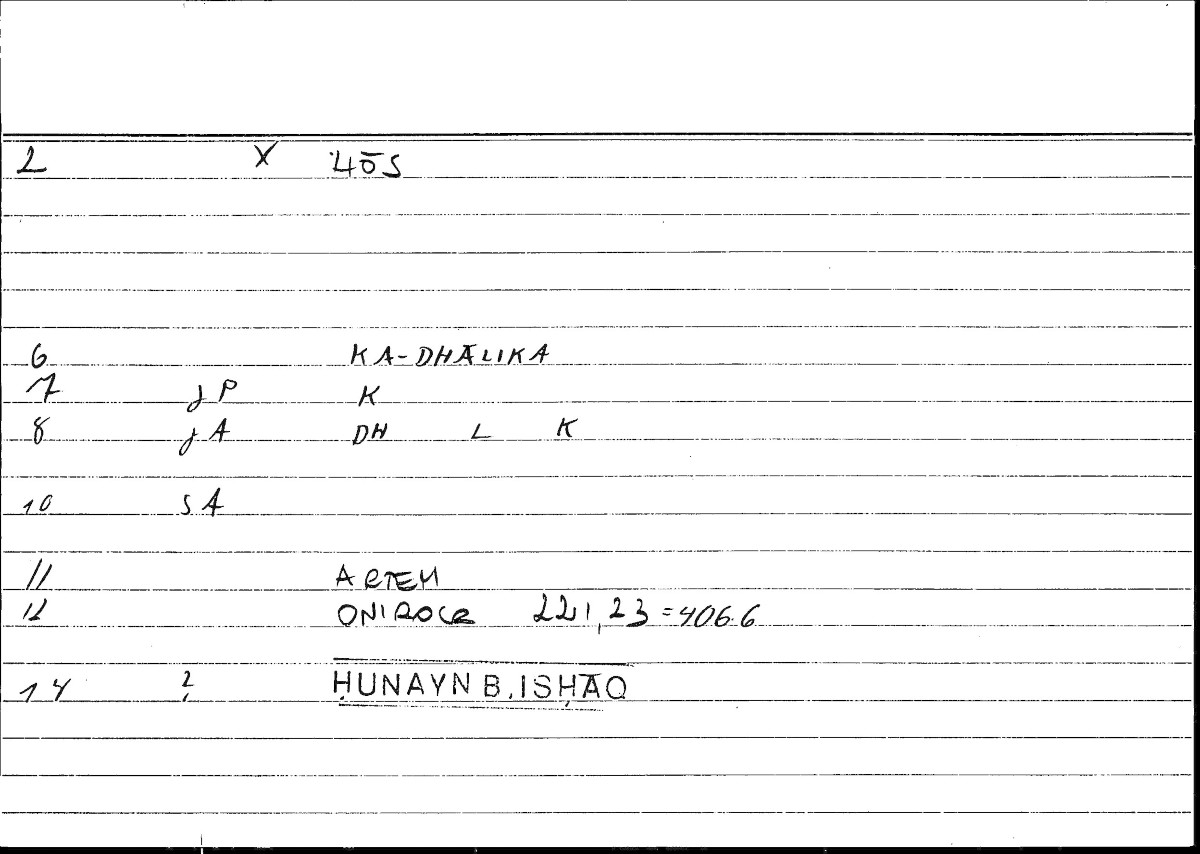 2 X HōS
6 KA-DHĀLIKA
7 jP K
8 jA DH L K
10 SA
11 ARTEM
12 ONIROCR 221,23 = 406.6
14 ? ḤUNAYN B. ISḤĀQ